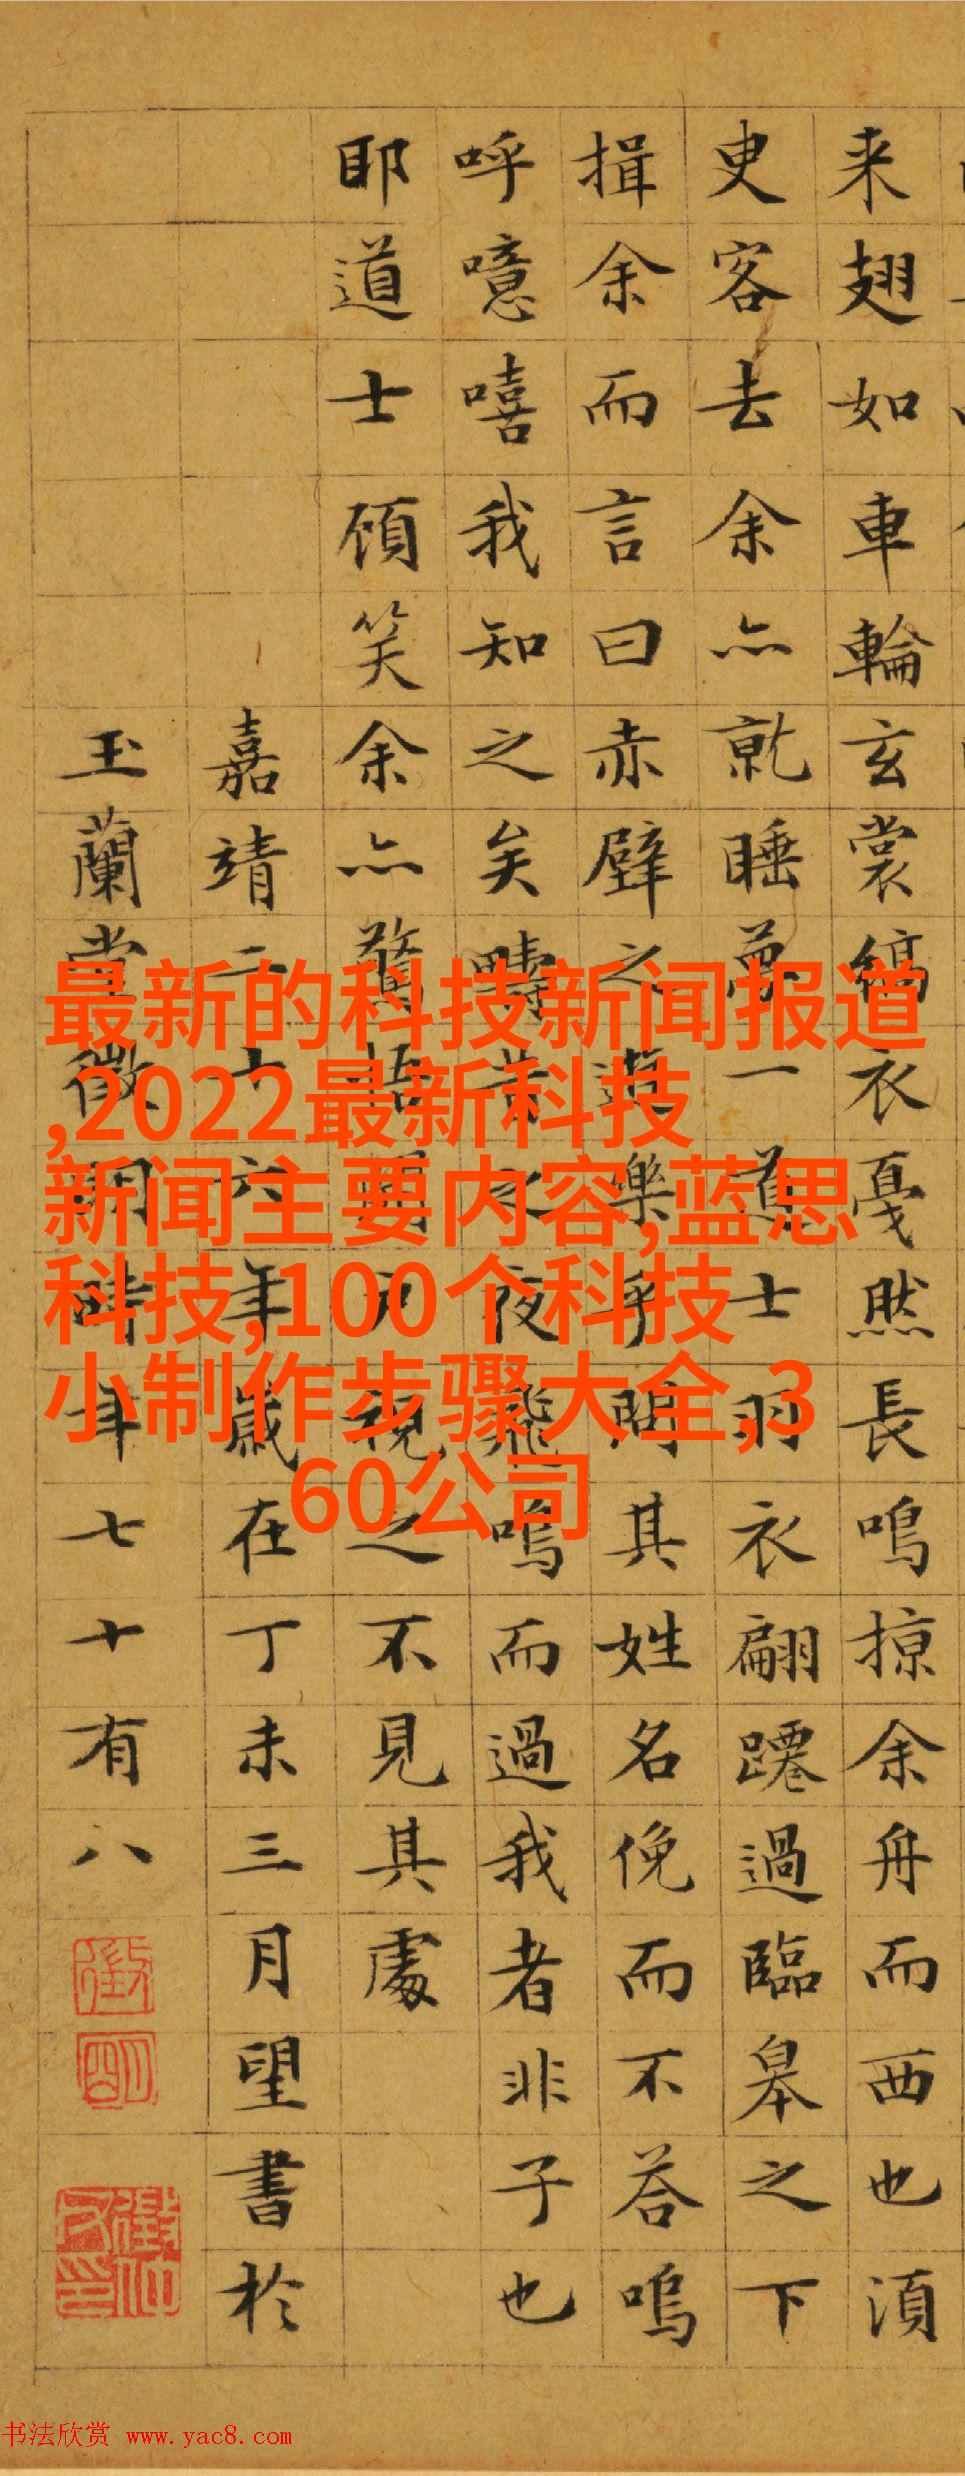 来翅如車輪玄裳縞衣戞然長鳴掠余舟而西也湏
臾客去余亦就睡夢一道士羽衣翩躚過臨皋之下
揖余而言曰赤壁之遊樂乎問其姓名俛而不答嗚
呼噫嘻我知之矣疇昔之夜飛鳴而過我者非子也
耶道士顧笑余亦驚悟開戶視之不見其處
嘉靖二十六年歲在丁未三月望書於
玉蘭堂徵明時年七十有八
最新的科技新闻报道
,2022最新科技
新闻主要内容,蓝思
科技,100个科技
小制作步骤大全,3
60公司
书法欣赏 www.yac8.com